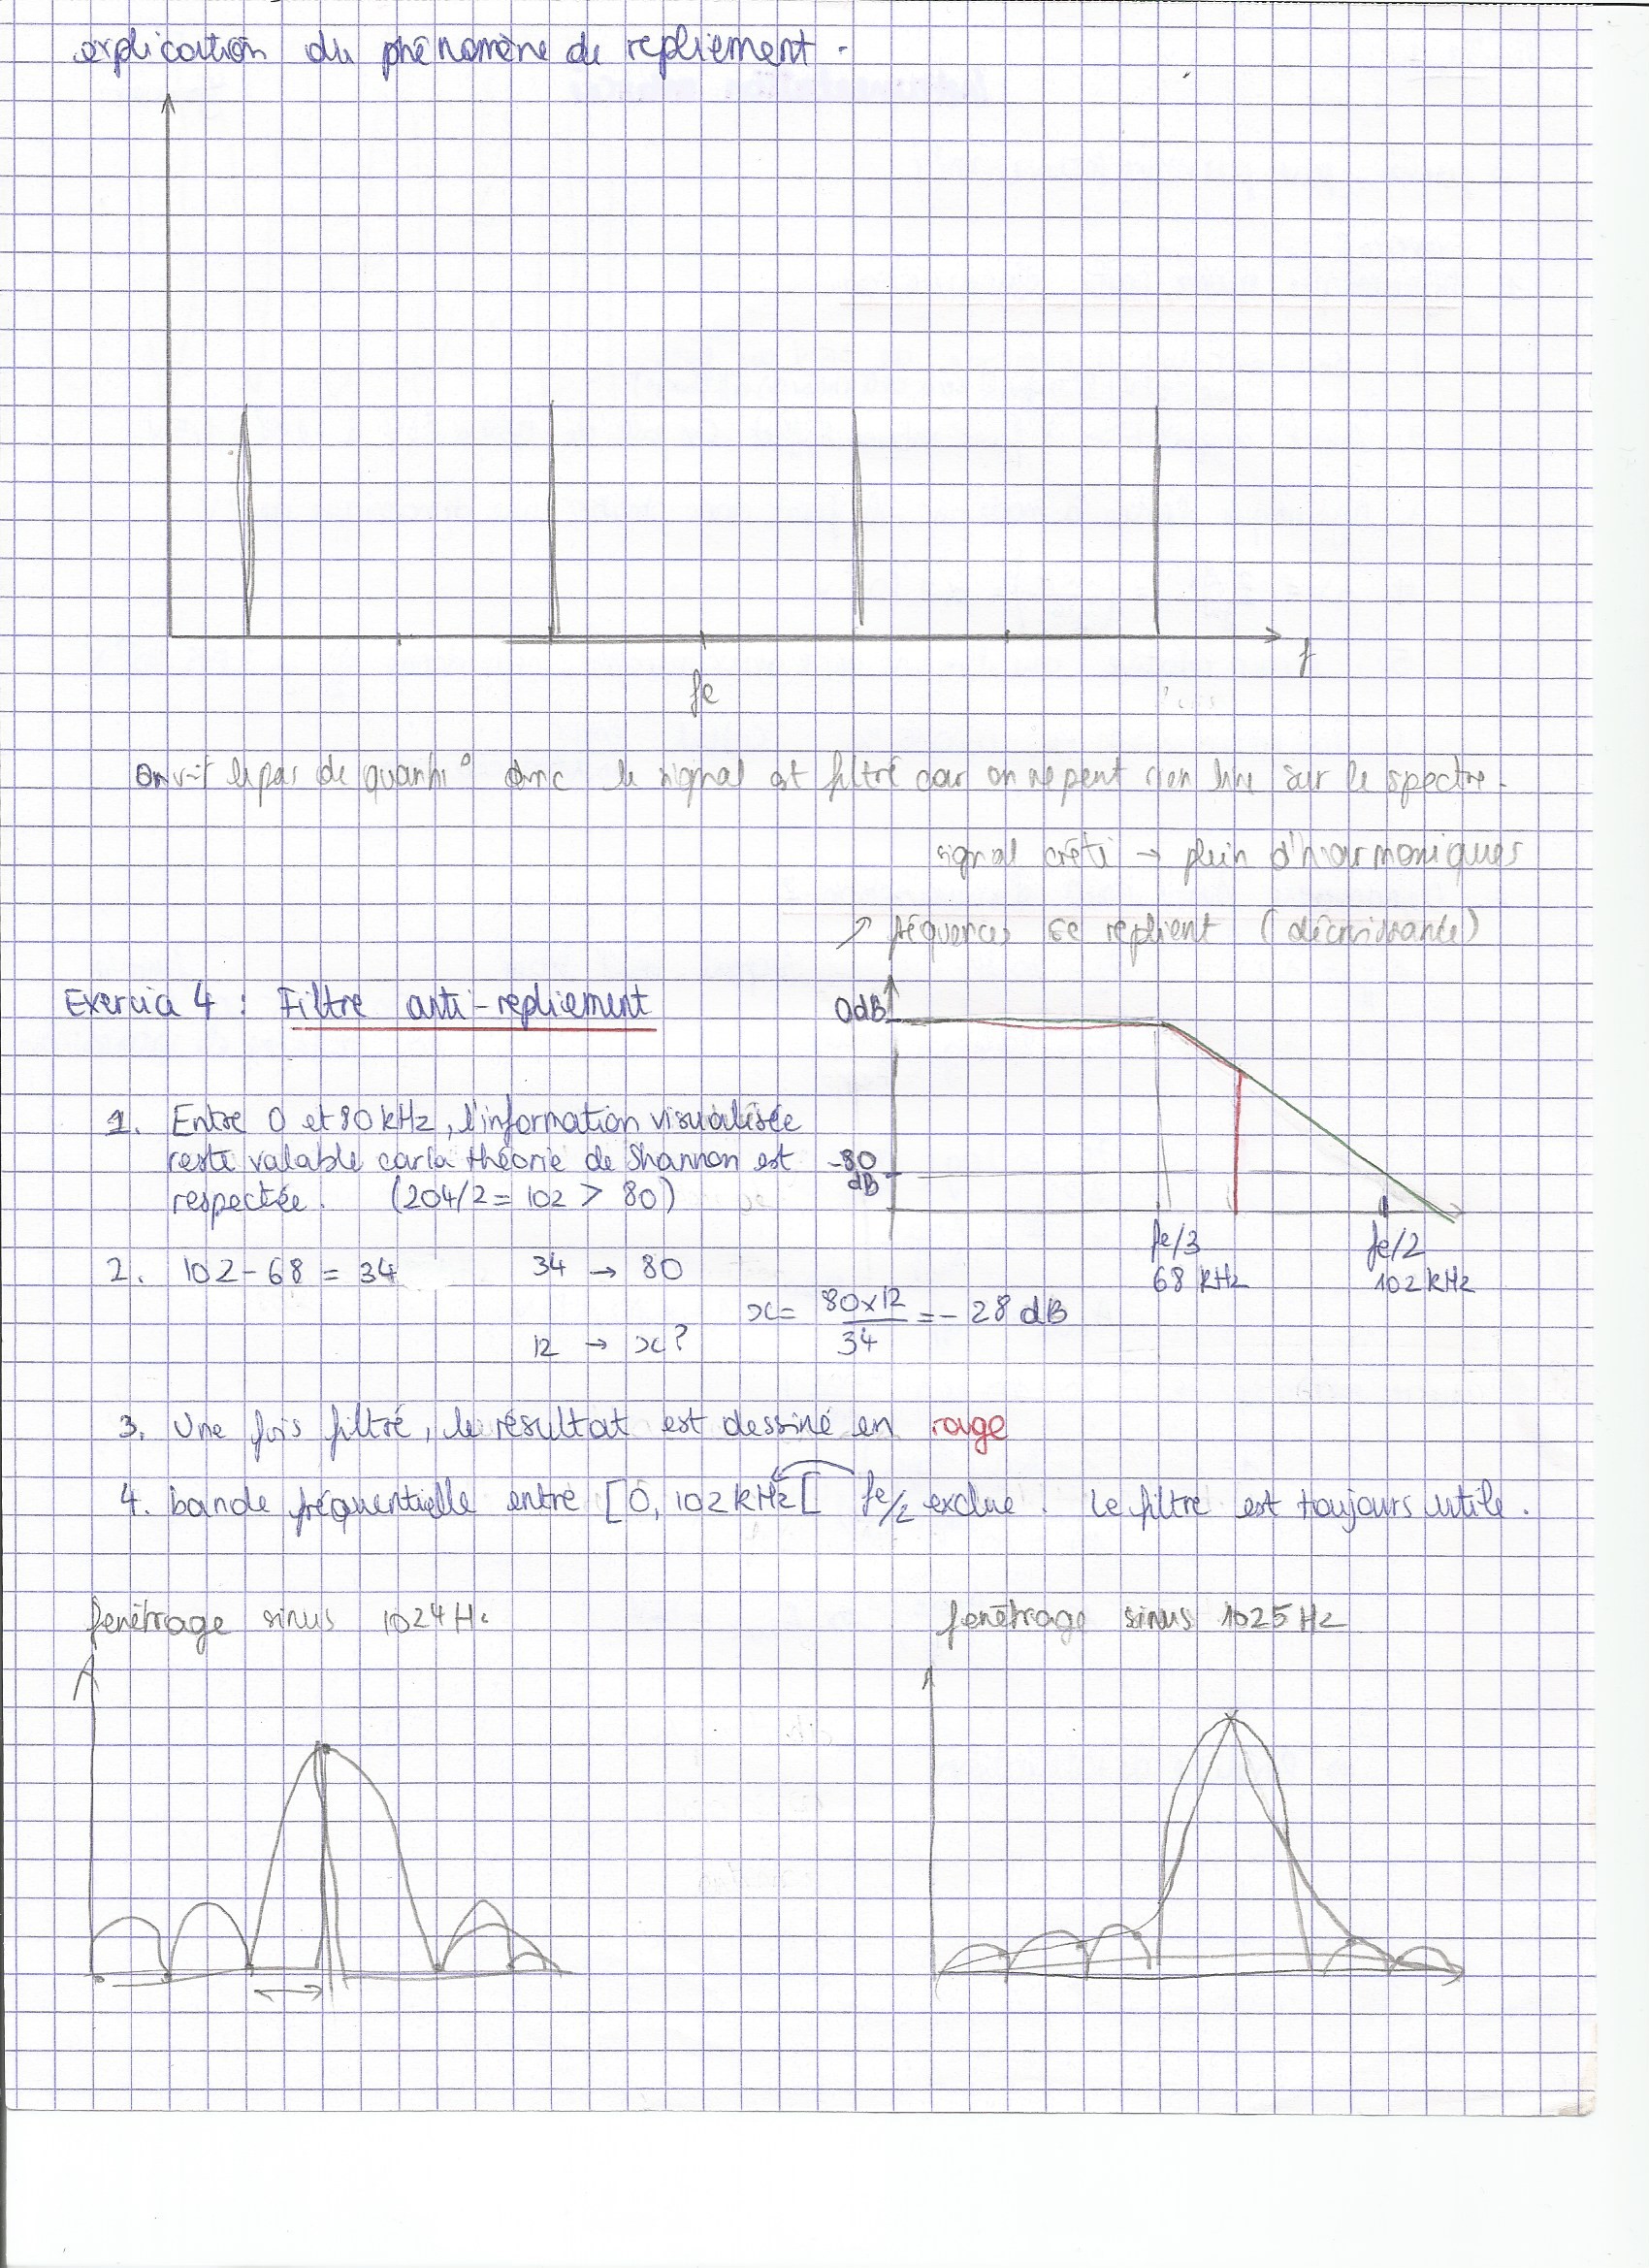 explication du phénomène de repliement.
f
fe
On voit le pas de quanti° donc le signal est filtré car on ne peut rien lire sur le spectre.
signal crêté → plein d'harmoniques
↗ fréquences se replient (décroissante)
Exercice 4 : Filtre anti-repliement
0dB
1. Entre 0 et 80 kHz, l'information visualisée
reste valable car la théorie de Shannon est
respectée. (204/2 = 102 > 80)
-80
dB
fe/3
68 kHz
fe/2
102 kHz
2. 102 - 68 = 34
34 → 80
12 → x?
x = 80x12 / 34 = - 28 dB
3. Une fois filtré, le résultat est dessiné en rouge
4. bande fréquentielle entre [0, 102 kHz[ fe/2 exclue. Le filtre est toujours utile.
fenêtrage sinus 1024 Hz
fenêtrage sinus 1025 Hz